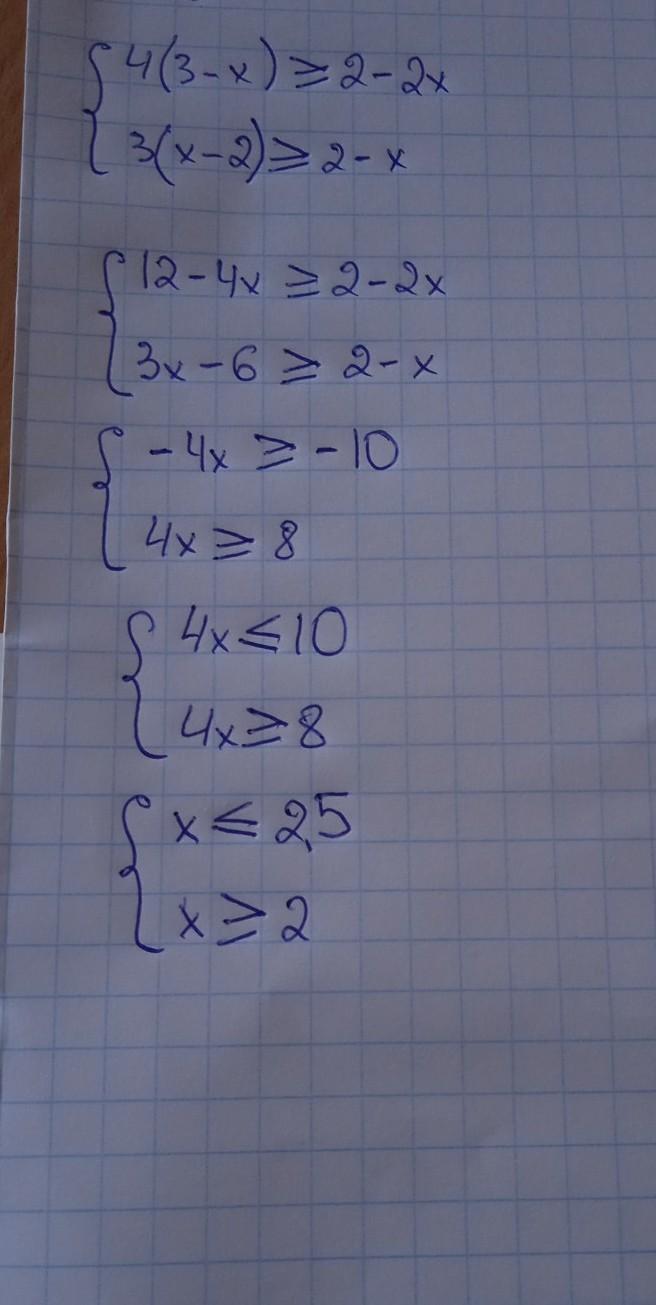 4(3-x) ≥ 2-2x
3(x-2) ≥ 2-x
12-4x ≥ 2-2x
3x-6 ≥ 2-x
-4x ≥ -10
4x ≥ 8
4x ≤ 10
4x ≥ 8
x ≤ 2,5
x ≥ 2